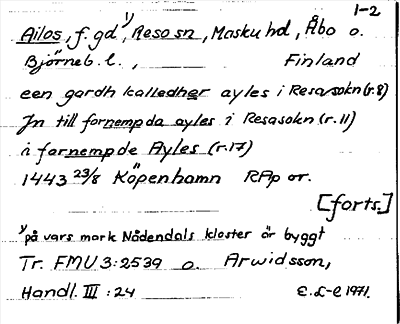 1-2
Ailos, f. gd 1), Reso sn, Masku hd, Åbo o.
Björneb. l., Finland
een gardh kalledher ayles i Resasokn (r. 8)
Jn till fornempda ayles i Resasokn (r. 11)
i fornempde Ayles (r. 17)
1443 23/8 Köpenhamn RAp or.
[forts.]
1) på vars mark Nådendals kloster är byggt
Tr. FMU 3:2539 o. Arwidsson,
Handl. III : 24 E. L-e 1971.